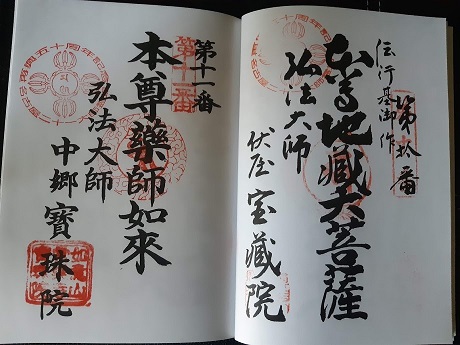 第拾番
伝行基御作
本尊地蔵大菩薩
弘法大師
伏屋 宝蔵院
第十一番
第十一番
本尊藥師如來
弘法大師
中郷 寶珠院